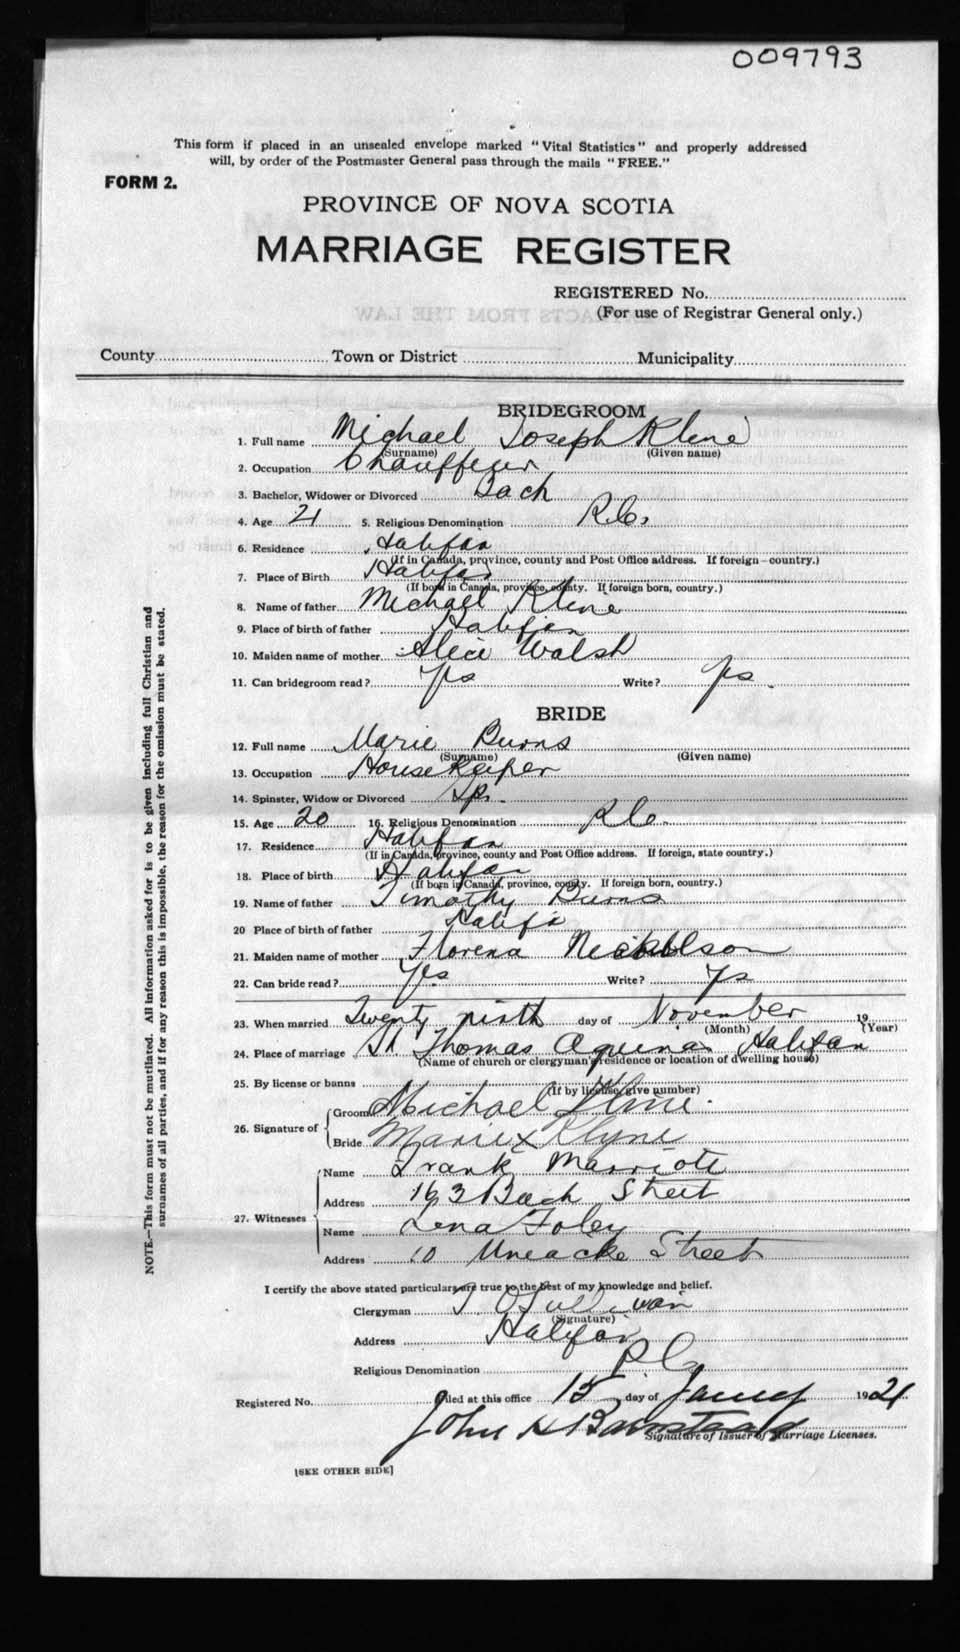 009793
This form if placed in an unsealed envelope marked "Vital Statistics" and properly addressed
will, by order of the Postmaster General pass through the mails "FREE."
FORM 2.
PROVINCE OF NOVA SCOTIA
MARRIAGE REGISTER
REGISTERED No.
(For use of Registrar General only.)
County Town or District Municipality
BRIDEGROOM
1. Full name Michael Joseph Klene
(Surname) (Given name)
2. Occupation Chauffeur
3. Bachelor, Widower or Divorced Bach
4. Age 21 5. Religious Denomination R.C.
6. Residence Halifax
(If in Canada, province, county and Post Office address. If foreign—country.)
7. Place of Birth Halifax
(If born in Canada, province, county. If foreign born, country.)
8. Name of father Michael Klene
9. Place of birth of father Halifax
10. Maiden name of mother Alice Walsh
11. Can bridegroom read? Yes Write? Yes.
BRIDE
12. Full name Marie Burns
(Surname) (Given name)
13. Occupation House Keeper
14. Spinster, Widow or Divorced Sp.
15. Age 20 16. Religious Denomination R C.
17. Residence Halifax
(If in Canada, province, county and Post Office address. If foreign, state country.)
18. Place of birth Halifax
(If born in Canada, province, county. If foreign born, country.)
19. Name of father Timothy Burns
20 Place of birth of father Halifx
21. Maiden name of mother Florena
22. Can bride read? Yes Write? Yes
23. When married Twenty ninth day of November 19
(Month) (Year)
24. Place of marriage St Thomas Aquinas Halifax
(Name of church or clergyman's residence or location of dwelling house)
25. By license or banns
(If by license, give number)
26. Signature of
Groom Michael Kline.
Bride Marie x Klyne
27. Witnesses
Name Frank Marriott
Address 163 Bach Street
Name Lena Foley
Address 10 Uneacke Street
I certify the above stated particulars are true to the best of my knowledge and belief.
Clergyman T. O'Sullivan
(Signature)
Address Halifax
Religious Denomination R C
Registered No. Filed at this office 15 day of Januy 1921
John H Barnstead
Signature of Issuer of Marriage Licenses.
[SEE OTHER SIDE]
NOTE.—This form must not be mutilated. All information asked for is to be given including full Christian and
surnames of all parties, and if for any reason this is impossible, the reason for the omission must be stated.